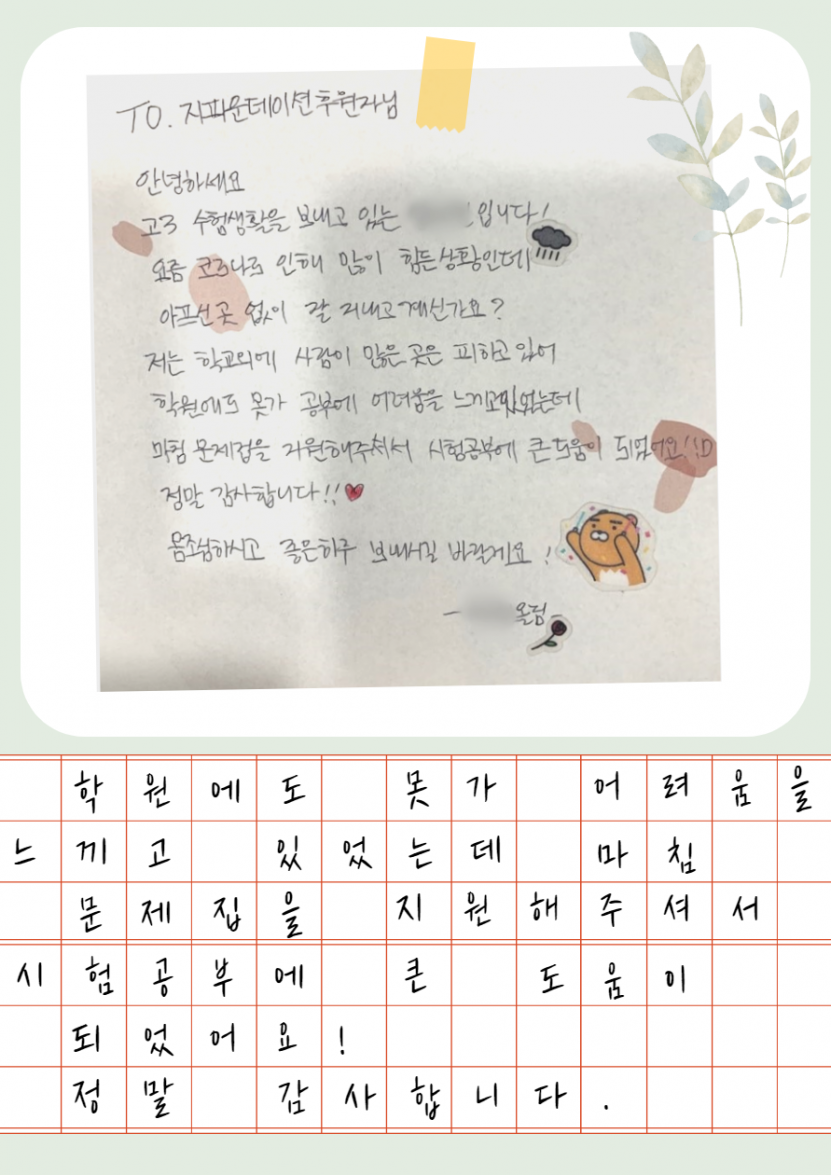 TO. 지파운데이션 후원자님
안녕하세요
고3 수험생활을 보내고 있는 입니다!
요즘 코로나로 인해 많이 힘든상황인데
아프신곳 없이 잘 지내고계신가요?
저는 학교외에 사람이 많은곳은 피하고있어
학원에도 못가 공부에 어려움을 느끼고있었는데
마침 문제집을 지원해주셔서 시험공부에 큰도움이 되었어요!:D
정말 감사합니다!!♥
몸조심하시고 좋은하루 보내시길 바랄게요!
- 올림 -
학원에도 못가 어려움을
느끼고 있었는데 마침
문제집을 지원해주셔서
시험공부에 큰 도움이
되었어요!
정말 감사합니다.